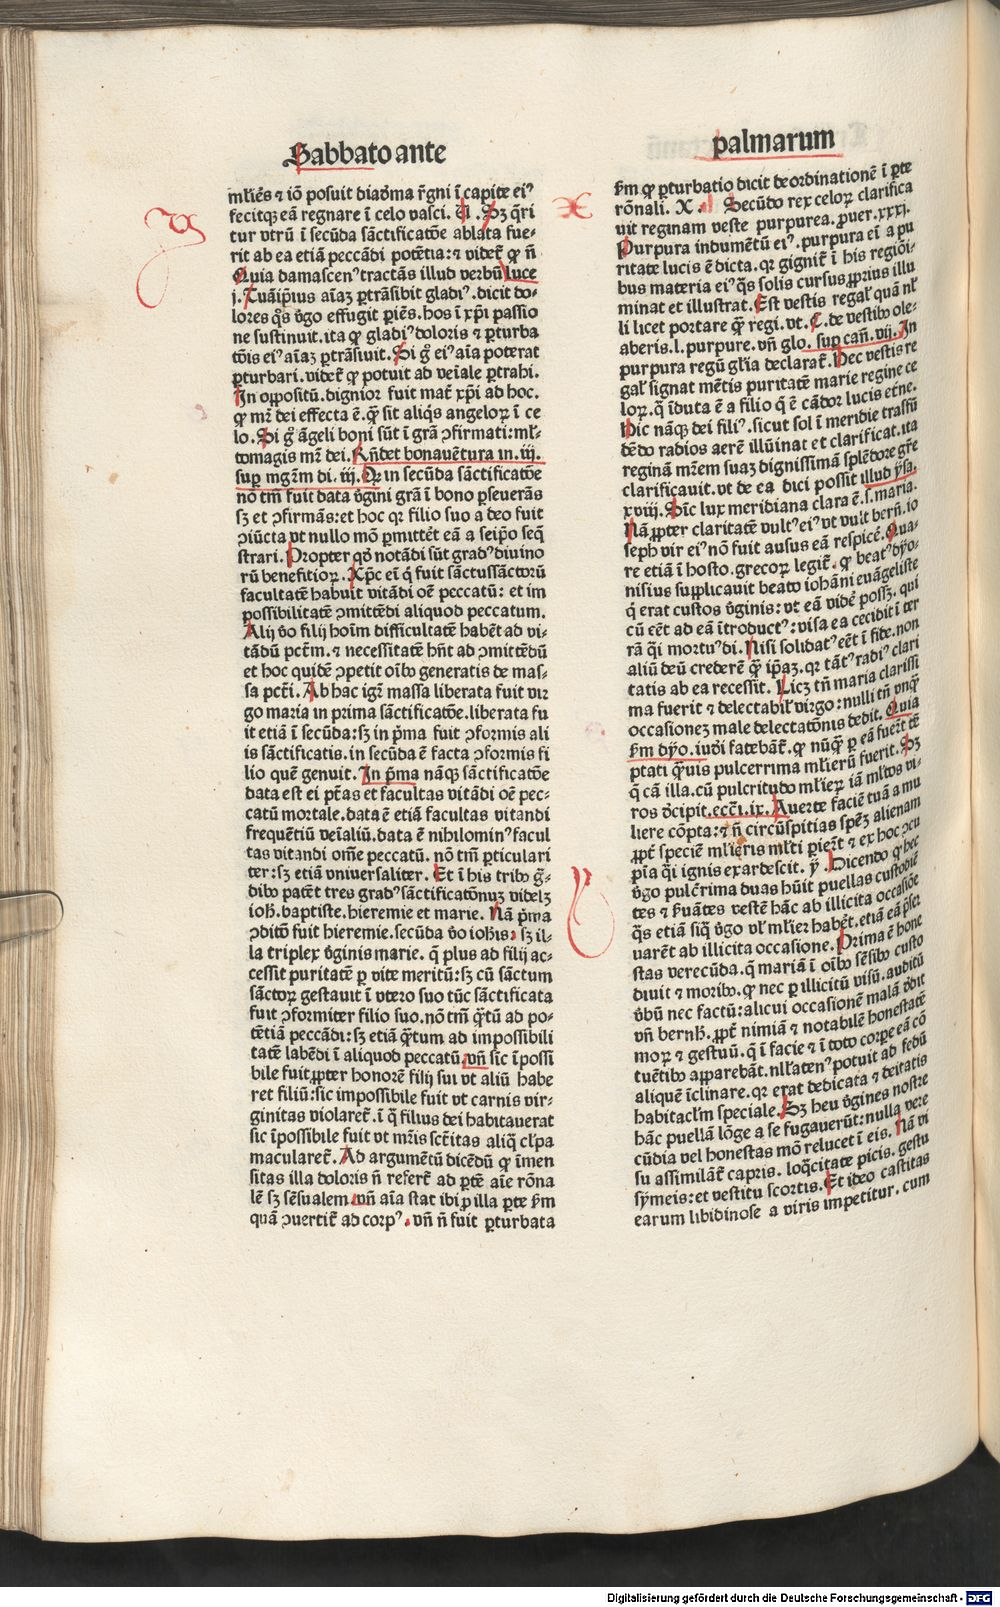 Sabbato ante
palmarum
mlieꝛ̄s ⁊ iō posuit diadēma r̄gni ī capite eiꝰ
fecitqꝫ eā regnare ī celo vasci. U. Sꝫ q̄ri
tur vtrū ī secūda sāctificatōe ablata fue-
rit ab ea etiā peccādi potētia: ⁊ videt̄ ꝙ n̄
Quia damascenꝰ tractās illud verbū luce
j. Tuā ip̄ius aīaꝫ ꝑtrāsibit gladiꝰ. dicit do-
lores q̄s v̄go effugit pariēs. hos ī xp̄i passio
ne sustinuit. ita ꝙ gladiꝰ doloris ⁊ ꝑturba
tōis eiꝰ aīaꝫ ꝑtrāsiuit. Si g̊ eiꝰ aīa poterat
ꝑturbari. videt̄ ꝙ potuit ad veīale ꝑtrahi.
In oppositū. dignior fuit mat̄ xp̄i ad hoc.
ꝙ mr̄ dei effecta ē. q̄ sit aliq̄s angeloꝝ ī ce
lo. Si g̊ āgeli boni sūt ī grā ↄfirmati: ml̄-
tomagis mr̄ dei. Rn̄det bonauētura in. iij.
suꝑ mgr̄m di. iij. Qꝛ in secūda sāctificatōe
nō tm̄ fuit data v̄gini grā ī bono ꝑseuerās
sꝫ et ↄfirmās: et hoc qꝛ filio suo a deo fuit
ↄiūcta vt nullo mō ꝑmittēt eā a seip̄o seq̄
strari. Propter qd̄ notādi sūt gradꝰ diuino
rū benefitioꝝ. Xp̄c eī q̄ fuit sāctussāctorū
facultatē habuit vitādi oē peccatū: et im
possibilitatē ↄmittēdi aliquod peccatum.
Alij v̄o filij hoīm difficultatē habēt ad vi-
tādū pctm̄. ⁊ necessitatē hn̄t ad ↄmittēdū
et hoc quidē ↄpetit oībꝰ generatis de mas-
sa pct̄i. Ab hac igr̄ massa liberata fuit vir
go maria in prima sāctificatōe. liberata fu
it etiā ī secūda: sꝫ in p̄ma fuit ↄformis ali
is sāctificatis. in secūda ē facta ↄformis fi
lio quē genuit. In p̄ma nāqꝫ sāctificatōe
data est ei pt̄as et facultas vitādi oē pec-
catū mortale. data ē etiā facultas vitandi
frequētiū veīaliū. data ē nihilominꝰ facul
tas vitandi om̄e peccatū. nō tm̄ ꝑticulari
ter: sꝫ etiā vniuersaliter. Et ī his tribꝰ ḡ-
dibꝰ patēt tres gradꝰ sāctificatōnuꝫ videlꝫ
ioh̄. baptiste. hieremie et marie. Nā p̄ma
ↄditō fuit hieremie. secūda v̄o ioh̄is: sꝫ il-
la triplex v̄ginis marie. q̄ plus ad filij ac-
cessit puritatē ꝑ vite meritū: sꝫ cū sāctum
sāctoꝝ gestauit ī vtero suo tūc sāctificata
fuit ↄformiter filio suo. nō tm̄ q̄tū ad po-
tētiā peccādi: sꝫ etiā q̄tum ad impossibili
tatē labēdi ī aliquod peccatū. vn̄ sic īpossi
bile fuit ꝓpter honorē filij sui vt aliū habe
ret filiū: sic impossibile fuit vt carnis vir-
ginitas violaret̄. ī q̄ filius dei habitauerat
sic īpossibile fuit vt mr̄is sct̄itas aliq̄ cl̄pa
macularet̄. Ad argumētū dicēdū ꝙ īmen
sitas illa doloris n̄ refert̄ ad ꝑtē aīe rōna
lē sꝫ sēsualem. vn̄ aīa stat ibi ꝑ illa ꝑte ẜm
quā ↄuertit̄ ad corpꝰ. vn̄ n̄ fuit ꝑturbata
ẜm ꝙ ꝑturbatio dicit deordinationē ī ꝑte
rōnali. X. Secūdo rex celoꝝ clarifica
uit reginam veste purpurea. ꝓuer. xxxj.
Purpura indumētū eiꝰ. purpura eī a pu
ritate lucis ē dicta. qꝛ gignit̄ ī his regiōi-
bus materia eiꝰ q̄s solis cursus ꝓprius illu
minat et illustrat. Est vestis regal̄ quā nl̄
li licet portare q̄ regi. vt. C. de vestibꝰ ole-
aberis. l. purpure. vn̄ glo. suꝑ cān. vij. In
purpura regū gl̄ia declarat̄. Hec vestis re
gal̄ signat mētis puritatē marie regine ce
loꝝ. q̄ īduta ē a filio q̄ ē cādor lucis etne.
Hic nāqꝫ dei filiꝰ. sicut sol ī meridie trasfū
dēdo radios aerē illūinat et clarificat. ita
reginā mr̄em suaꝫ dignissimā splēdore gr̄e
clarificauit. vt de ea dici possit illud ysa.
xviij. Sīc lux meridiana clara ē. s. maria.
Nā ꝓpter claritatē vultꝰ eiꝰ vt vult bern̄. io
seph vir eiꝰ nō fuit ausus eā respicē. Qua-
re etiā ī hosto. grecoꝝ legit̄. ꝙ beatꝰ dyo-
nisius supplicauit beato iohāni euāgeliste
q̄ erat custos v̄ginis: vt eā vidē possꝫ. qui
cū eēt ad eā ītroductꝰ: visa ea cecidit ī ter
rā q̄i mortuꝰ di. Nisi solidatꝰ eēt ī fide. non
aliū deū crederē q̄ ip̄aꝫ. qꝛ tātꝰ radiꝰ clari
tatis ab ea recessit. Licꝫ tn̄ maria clarissi
ma fuerit ⁊ delectabil̄ virgo: nulli tn̄ vnq̄
occasionez male delectatōnis dedit. Quia
ẜm dyo. iudi fatebāt̄. ꝙ nūq̄ ꝑ eā fuerūt tē
ptati q̄uis pulcerrima ml̄ierū fuerit. Sꝫ
q̄ cā illa. cū pulcritudo ml̄ieꝝ iā ml̄tos vi-
ros dcipit. ecc̄i. ix. Auerte faciē tuā a mu
liere cōpta: ⁊ n̄ circūspitias spēꝫ alienam
ꝓpt̄ speciē ml̄ieris ml̄ti pieꝝt ⁊ ex hoc ↄcu
pīa q̄i ignis exardescit. ꝟ. Dicendo ꝙ hec
v̄go pulc̄rima duas hūit puellas custodiē
tes ⁊ ẜuātes vestē hāc ab illicita occasiōe
q̄s etiā siq̄ v̄go vl̄ ml̄ier habēt. etiā eā p̄ser
uarēt ab illicita occasione. Prima ē hone
stas verecūda. q̄ mariā ī oībꝰ sēsibꝰ custo
diuit ⁊ moribꝰ. ꝙ nec ꝑ illicitū visū. auditū
v̄bū nec factū: alicui occasionē malā dedit
vn̄ bernh̄. ꝓpt̄ nimiā ⁊ notabilē honestatē
moꝝ ⁊ gestuū. q̄ ī facie ⁊ ī toto corꝑe eā cō
tuētibꝰ apparebāt. nl̄latenꝰ potuit ad fedū
aliquē īclinare. qꝛ erat dedicata ⁊ deitatis
habitacl̄m speciale. Sꝫ heu v̄gines nostre
hāc puellā lōge a se fugauerūt: nulla vere
cūdia vel honestas mō relucet ī eis. Nā vi
su assimilāt̄ capris. loq̄citate picis. gestu
symeis: et vestitu scortis. Et ideo castitas
earum libidinose a viris impetitur. cum
Digitalisierung gefördert durch die Deutsche Forschungsgemeinschaft - DFG